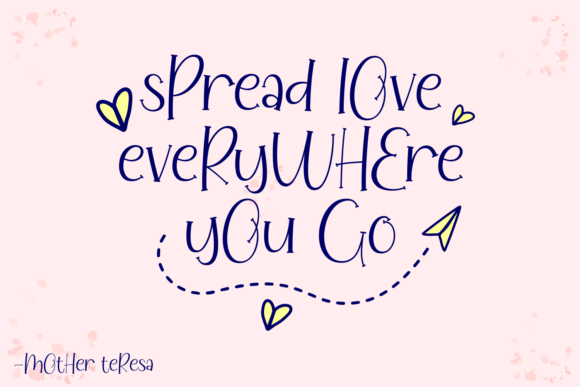 sPread lOve
eveRyWHEre
yOu Go
-MOtHer teResa